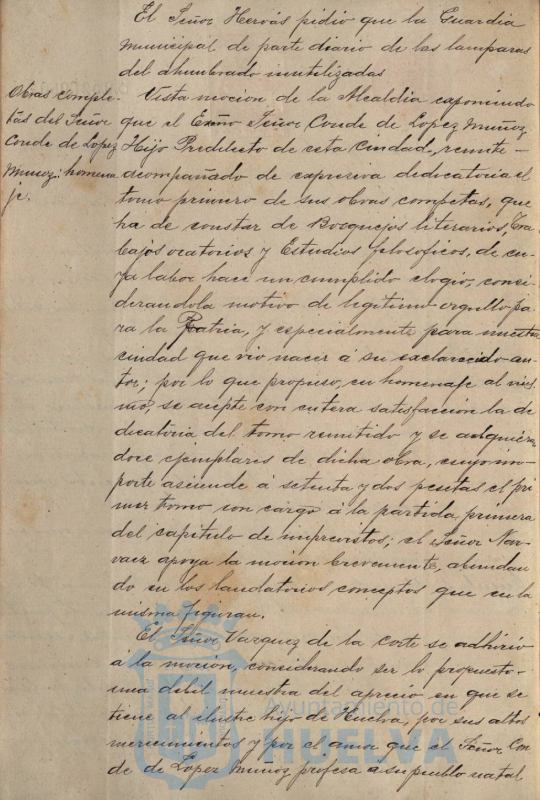 El Señor Hervás pidió que la Guardia
Municipal de parte diario de las lamparas
del alumbrado inutilizadas
Obras comple-
tas del Señor
Conde de Lopez
Muñoz: homena
je.
Vista mocion de la Alcaldia exponiendo
que el Exmo Señor Conde de Lopez Muñoz
Hijo Predilecto de esta ciudad, remite
acompañado de expresiva dedicatoria el
tomo primero de sus obras competas, que
ha de constar de Bosquejos literarios, Tra
bajos oratorios y Estudios filosoficos, de cu-
ya labor hace un cumplido elogio, consi-
derandola motivo de legitimo orgullo pa
ra la Patria, y especialmente para nuestra
ciudad que vio nacer á su esclarecido au-
tor; por lo que propuso, en homenaje al mis
mo, se acepte con entera satisfacción la de
dicatoria del tomo remitido y se adquieran
doce ejemplares de dicha obra, cuyo im-
porte asciende á setenta y dos pesetas el pri
mer tomo con cargo á la partida primera
del capitulo de imprevistos; el Señor Nar-
vaez apoya la mocion brevemente, abundan
do en los laudatorios conceptos que en la
misma figuran.
El Señor Vazquez de la Corte se adhirió
a la mocion, considerando ser lo propuesto
una debil muestra del aprecio en que se
tiene al ilustre hijo de Huelva, por sus altos
merecimientos y por el amor que el Señor Con
de de Lopez Muñoz profesa a su pueblo natal
Ayuntamiento de
HUELVA